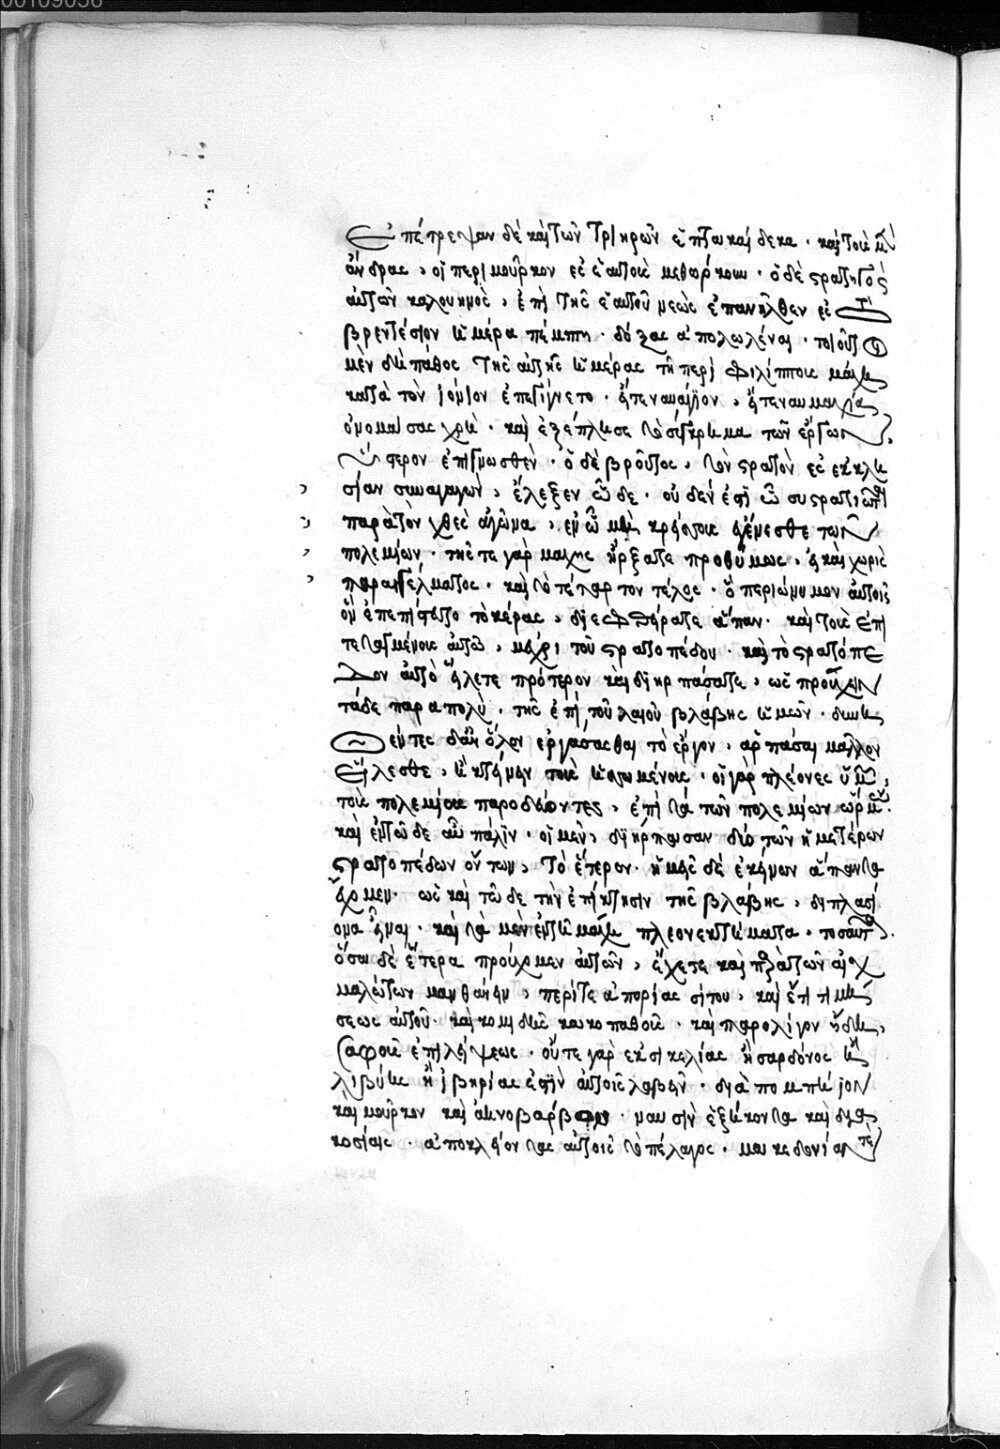 ἐπέτρεψαν δὲ καὶ τῶν τριηρῶν ἑπτακαίδεκα · καὶ τοὺς μὲν
ἄνδρας, οἱ περὶ μοῦρκον ἐς ἑαυτοὺς μεθώρκουν · ὁ δὲ στρατηγὸς
αὐτῶν καλουῖνος, ἐπὶ τῆς ἑαυτοῦ νεὼς ἐπανῆλθεν ἐς τὸ
βρεντέσιον ἡμέρα πέμπτη · δόξας ἀπολωλέναι · τοιοῦτο
μὲν δὴ πάθος τῆς αὐτῆς ἡμέρας τῇ περὶ φιλίππους μάχη
κατὰ τὸν ἰόνιον ἐπεγίγνετο · εἴτε ναυάγιον, εἴτε ναυμαχίαν
ὀνομάσας χρὴ · καὶ ἐξέπλησσε τὸ σύγκριμα τῶν ἔργων
ὕστερον ἐπιγνωσθὲν · ὁ δὲ βροῦτος, τὸν στρατὸν ἐς ἐκκλη
σίαν συναγαγὼν, ἔλεξεν ὧδε · οὐδὲν ἐστὶν ὦ συστρατιῶται
παρὰ τὸν χθὲς ἀγῶνα, ἐν ᾧ μὴ κρείττους ἐγένεσθε τῶν
πολεμίων · τῆς τε γὰρ μάχης ἤρξατε προθύμως, εἰ καὶ χωρὶς
παραγγέλματος · καὶ τὸ τέταρτον τέλος · ὃ περιώνυμον αὐτοῖς
ὂν ἐπεπίστευτο τὸ κέρας, διεφθείρατε ἅπαν · καὶ τοὺς ἐπι
τεταγμένους αὐτῷ, μέχρι τοῦ στρατοπέδου · καὶ τὸ στρατόπε
δον αὐτὸ εἵλετε πρότερον καὶ διηρπάσατε, ὡς προύχειν
τάδε παρὰ πολὺ · τῆς ἐπὶ τοῦ λαιοῦ βλάβης ἡμῶν · δυνη
θέντες δ' ἂν ὅλον ἐργάσασθαι τὸ ἔργον, ἁρπάσαι μᾶλλον
εἵλεσθε, ἢ κτείνειν τοὺς ἡσσωμένους · οἱ γὰρ πλέονες ὑμῶν,
τοὺς πολεμίους παροδεύοντες, ἐπὶ τὰ τῶν πολεμίων ὥρμων ·
καὶ ἐν τῷδε αὖ πάλιν · οἱ μὲν, διήρπασαν δύο τῶν ἡμετέρων
στρατοπέδων ὄντων, τὸ ἕτερον · ἡμεῖς δὲ ἐκείνων ἅπαντα
ἔχομεν · ὡς καὶ τῷδε τὴν ἐπίκτησιν τῆς βλάβης, διπλασί
ονα εἶναι · καὶ τὰ μὲν ἐν τῇ μάχῃ πλεονεκτήματα · τοσαῦτα ·
ὅσα δὲ ἕτερα προύχομεν αὐτῶν, ἔχετε καὶ παρὰ τῶν αἰχ
μαλώτων μανθάνειν, περί τε ἀπορίας σίτου, καὶ ἐπιτιμή
σεως αὐτοῦ · καὶ κομιδῆς κακοπαθοῦς · καὶ παρ' ὀλίγον ἤδη,
σαφοῦς ἐπιλείψεως · οὔτε γὰρ ἐκ σικελίας ἢ σαρδόνος ἢ
λιβύης ἢ ἰβηρίας ἐστὶν αὐτοῖς λαβεῖν · διὰ πομπήιον
καὶ μοῦρκον καὶ ἀηνοβάρβον · ναυσὶν ἑξήκοντα καὶ δια
κοσίαις · ἀποκλείοντας αὐτοῖς τὸ πέλαγος · μακεδονίαν τε